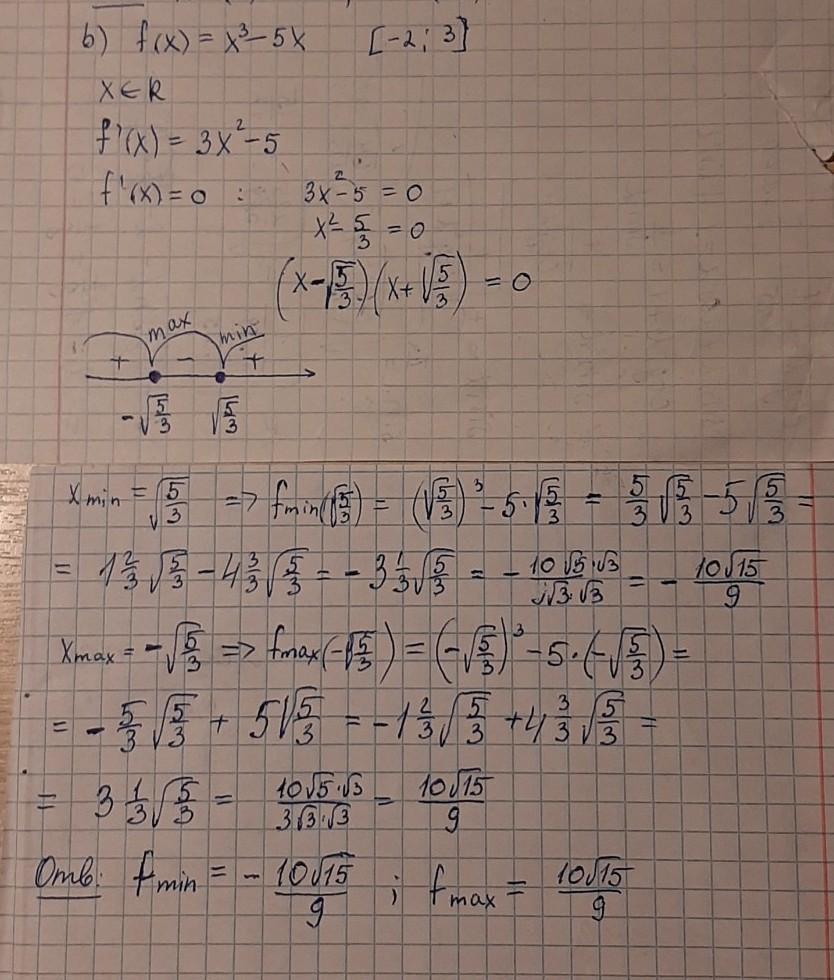 b) f(x) = x³-5x [-2; 3]
x∈R
f'(x) = 3x²-5
f'(x) = 0 : 3x²-5 = 0
x²-5/3 = 0
(x-√(5/3))(x+√(5/3)) = 0
max min
+ - +
-√(5/3) √(5/3)
x min = √(5/3) => f min(√(5/3)) = (√(5/3))³-5·√(5/3) = 5/3√(5/3)-5√(5/3) =
= 1 2/3√(5/3)-4 3/3√(5/3) = -3 1/3√(5/3) = -(10√5·√3)/(3√3·√3) = -10√15/9
x max = -√(5/3) => f max(-√(5/3)) = (-√(5/3))³-5·(-√(5/3)) =
= -5/3√(5/3) + 5√(5/3) = -1 2/3√(5/3) + 4 3/3√(5/3) =
= 3 1/3√(5/3) = (10√5·√3)/(3√3·√3) = 10√15/9
Отв: f min = -10√15/9 ; f max = 10√15/9